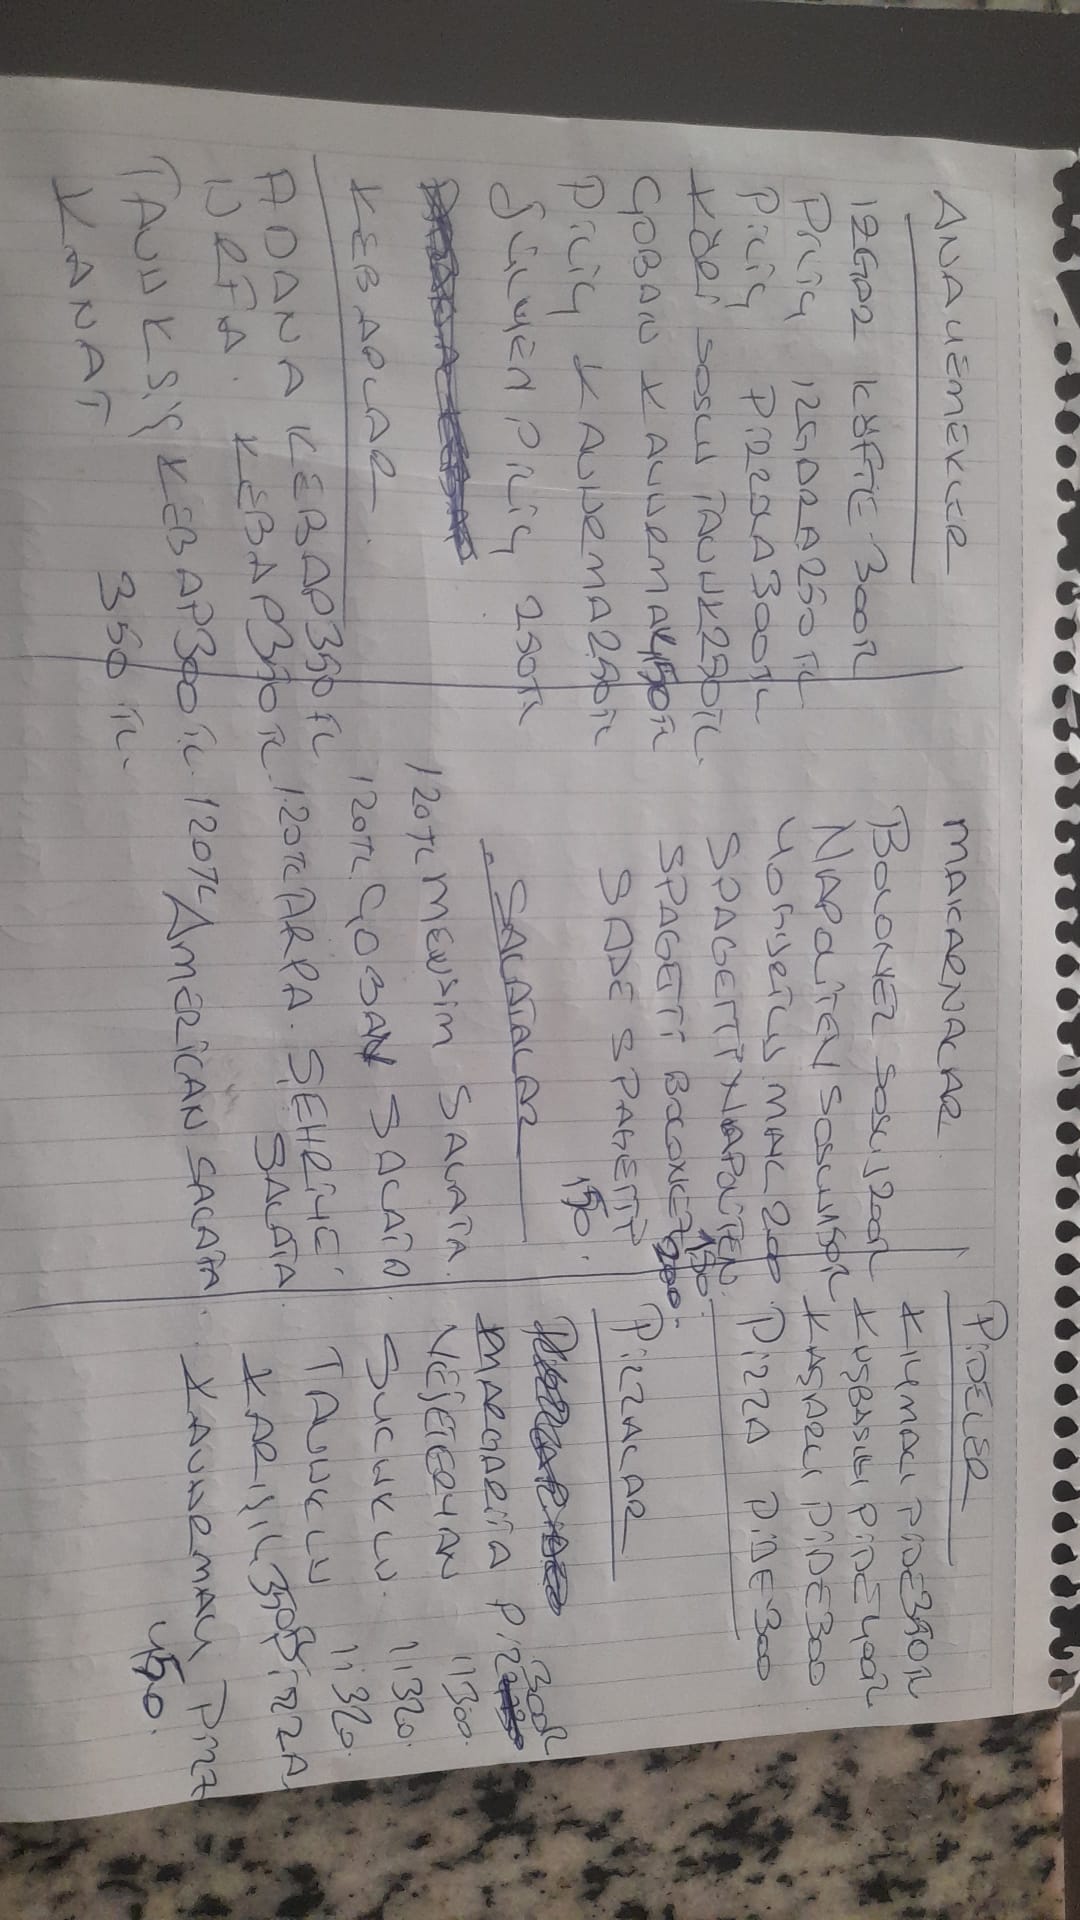 ANAYEMEKLER
IZGAR KÖFTE 300TL
PİLİÇ IZGARA 250TL
PİLİÇ PİRZOLA 300TL
KÖRİ SOSLU TAVUK 250TL
ÇOBAN KAVURMA 450TL
PİLİÇ KAVURMA 250TL
ŞİNİTZEL PİLİÇ 250TL
KEBAPLAR
ADANA KEBAP 350TL
URFA KEBAP 350TL
TAVUK ŞİŞ KEBAP 300TL
KANAT 350 TL.
MAKARNALAR
BOLONEZ SOSLU 200TL
NAPOLİTEN SOSLU 150TL
YOĞURTLU MAK 200
SPAGETTİ NAPOLİTEN 150.
SPAGETTİ BOLONEZ 200.
SADE SPAGETTİ 150.
SALATALAR
120TL MEVSİM SALATA.
120TL ÇOBAN SALATA.
120TL ARPA ŞEHRİYE
SALATA
120TL AMERİCAN SALATA.
PİDELER
KIYMALI PİDE 350TL
KUŞBAŞILI PİDE 400TL
KAŞARLI PİDE 300
PİZZA PİDE 300
PİZZALAR
MARGARİTA PİZ 300TL
VEJETERYAN 11 300.
SUCUKLU. 11 320.
TAVUKLU 11 320.
KARIŞIK 350 PİZZA.
KAVURMALI PİZZ
450.